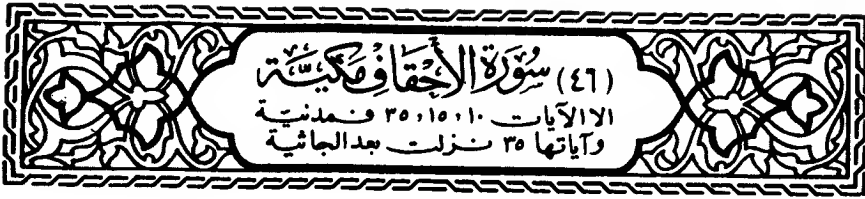 (٤٦) سُورَةُ الأَحْقَافِ مَكِّيَّة
الا الآيات ١٠ ، ١٥ ، ٣٥ فمدنية
وآياتها ٣٥ نزلت بعد الجاثية